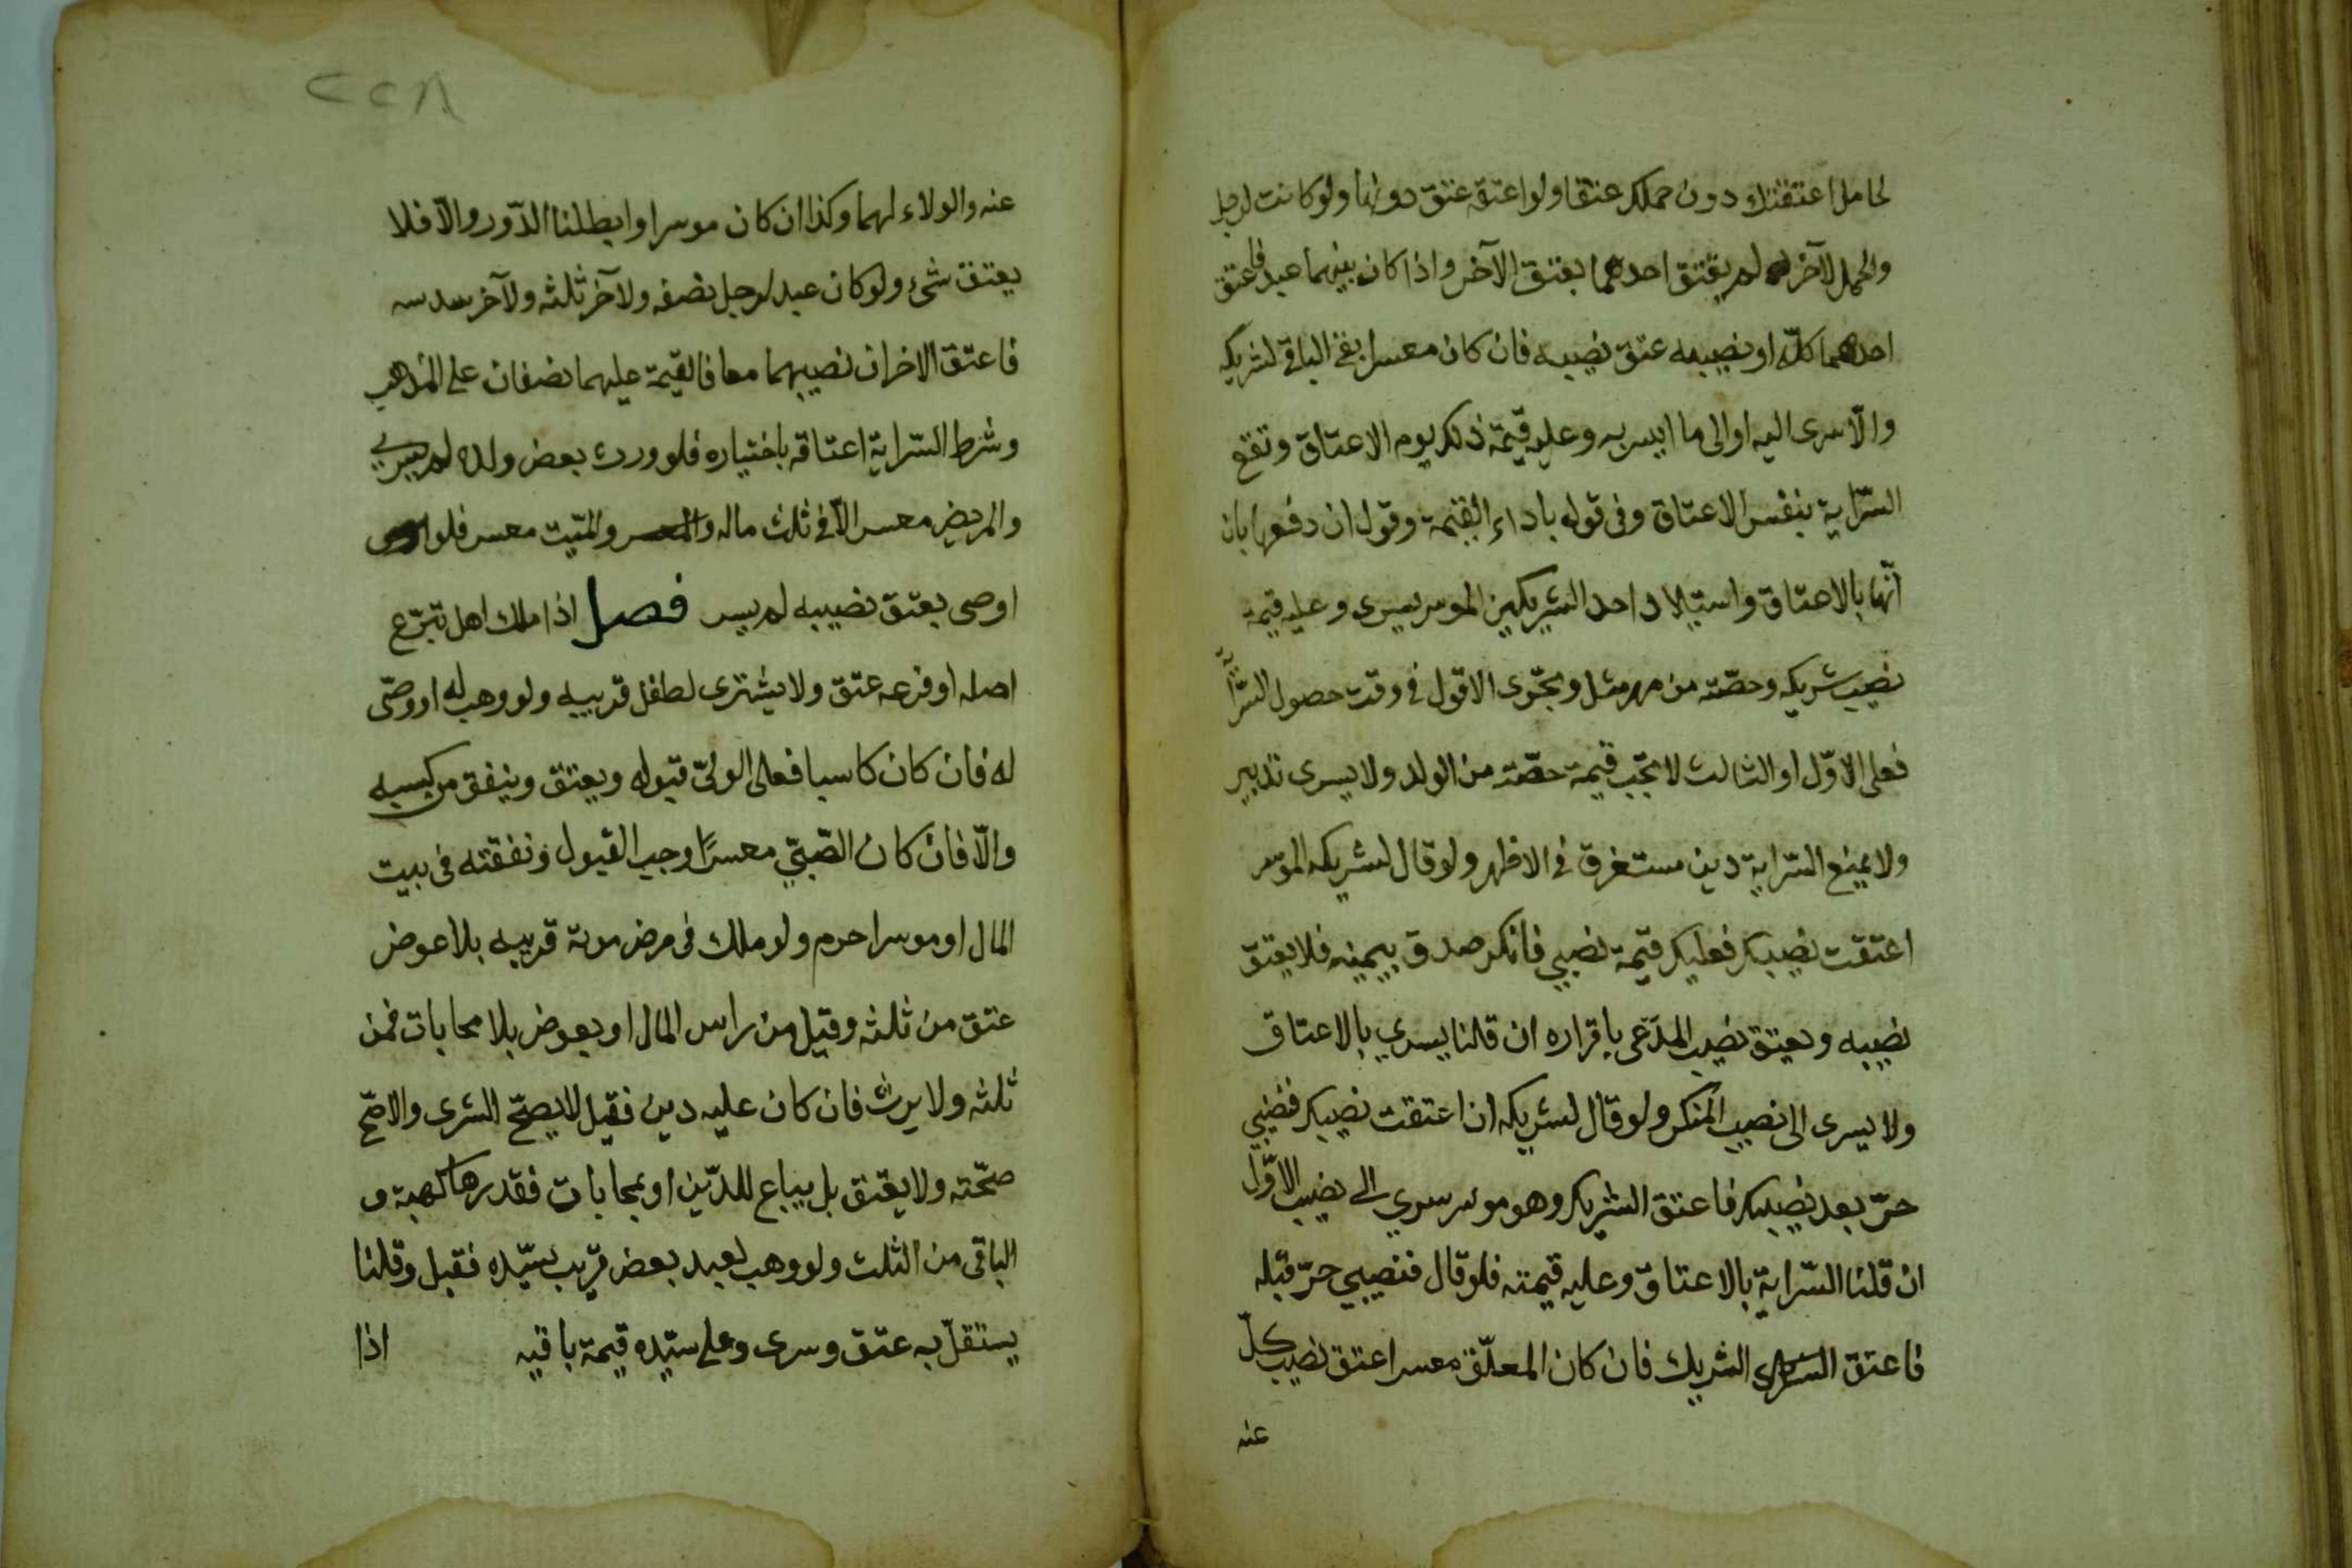 لحامل اعتقتك دون حملك عتقا ولو اعتقه عتق دونها ولو كانت لرجل
والحمل لآخر لم يعتق احدهما بعتق الآخر واذا كان بينهما عبد فاعتق
احدهما كلّه او نصيبه عتق نصيبه فان كان معسرا بقي الباقي لشريكه
والّا سرى اليه او الى ما ايسر به وعليه قيمة ذلك يوم الاعتاق وتقع
السّراية بنفس الاعتاق وفى قول باداء القيمة وقول ان دفعها بان
انّها بالاعتاق واستيلاد احد الشريكين الموسر يسرى وعليه قيمة
نصيب شريكه وحصّته من مهر مثل وتجرى الاقول في وقت حصول السّراية
فعلى الاوّل او الثالث لا تجب قيمة حصّته من الولد ولا يسرى تدبير
ولا يمنع السّراية دين مستغرق في الاظهر ولو قال لشريكه الموسر
اعتقت نصيبك فعليك قيمة نصيبي فانكر صدق بيمينه فلا يعتق
نصيبه ويعتق نصيب المدّعى باقراره ان قلنا يسري بالاعتاق
ولا يسرى الى نصيب المنكر ولو قال لشريكه ان اعتقت نصيبك فنصيبي
حرّ بعد نصيبك فاعتق الشريك وهو موسر سري الى نصيب الاوّل
ان قلنا السّراية بالاعتاق وعليه قيمته فلو قال فنصيبي حرّ قبله
فاعتق الشريك فان كان المعلّق معسرا عتق نصيب كلّ
عنه
٢٢٨
عنه والولاء لهما وكذا ان كان موسرا وابطلنا الدّور والّا فلا
يعتق شئ ولو كان عبد لرجل نصفه ولآخر ثلثه ولآخر سدسه
فاعتق الاخران نصيبهما معا فالقيمة عليهما نصفان على المذهب
وشرط السّراية اعتاقه باختياره فلو ورث بعض ولده لم يسري
والمريض معسر الّا في ثلث ماله والميّت معسر فلو
اوصى بعتق نصيبه لم يسر فصل اذا ملك اهل تبرّع
اصله او فرعه عتق ولا يشترى لطفل قريبه ولو وهب له او وصّى
له فان كان كاسبا فعلى الولىّ قبوله ويعتق وينفق من كسبه
والّا فان كان الصّبيّ معسرًا وجب القبول ونفقته فى بيت
المال او موسرا حرم ولو ملك فى مرض موته قريبه بلا عوض
عتق من ثلثه وقيل من راس المال او بعوض بلا محابات فمن
ثلثه ولا يرث فان كان عليه دين فقيل لا يصحّ الشرى والاصّح
صحّته ولا يعتق بل يباع للدّين او بمحابات فقدرها كهبة و
الباقى من الثلث ولو وهب لعبد بعض قريب سيّده فقبل وقلنا
يستقلّ به عتق وسرى وعلى سيّده قيمة باقيه
اذا